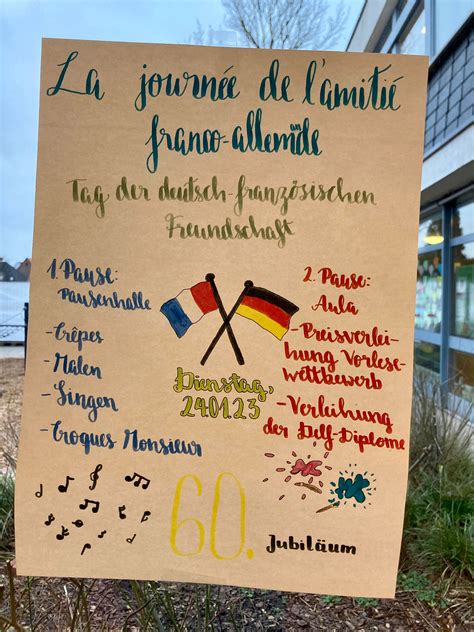 La journée de l'amitié
franco-allemande
Tag der deutsch-französischen
Freundschaft
1. Pause:
Pausenhalle
-Crêpes
-Malen
-Singen
-Croques Monsieur
Dienstag,
24.01.23
2. Pause:
Aula
-Preisverlei-
hung Vorlese-
wettbewerb
-Verleihung
der Delf-Diplome
60.
Jubiläum